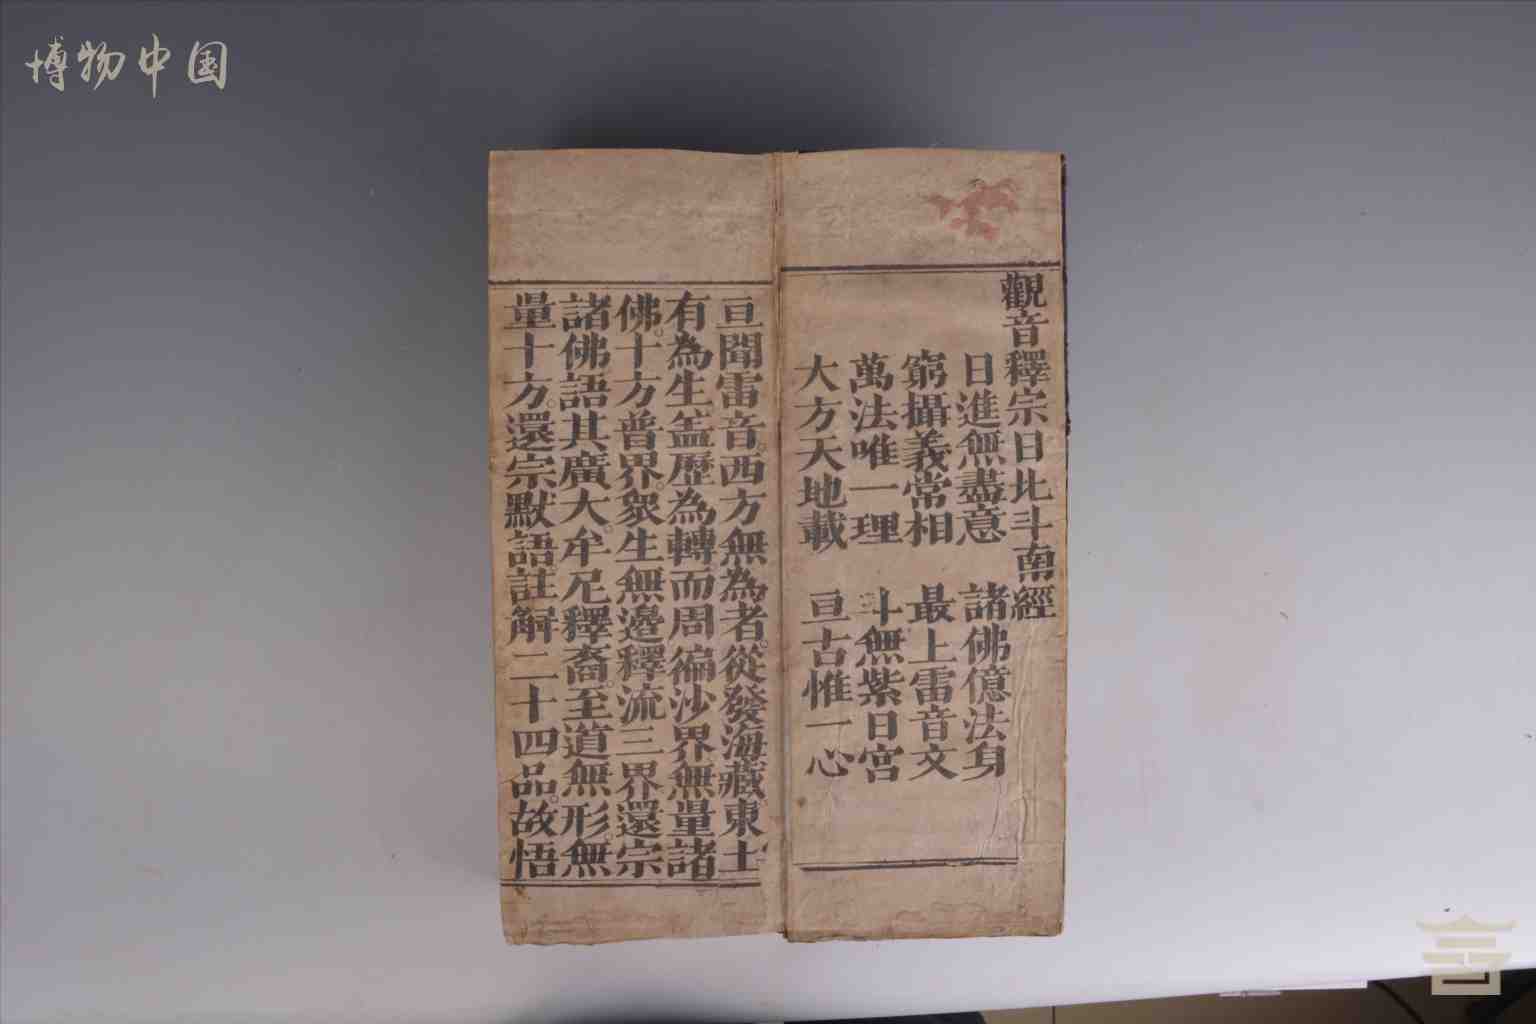 博物中国
觀音釋宗日北斗南經
日進無盡意 諸佛億法身
窮攝義常相 最上雷音文
萬法唯一理 斗無紫日宮
大方天地載 亘古惟一心
亘聞雷音。西方無為者。從發海藏東土
有為生盖歷為轉而周徧沙界無量諸
佛。十方普界。眾生無邊釋流三界還宗
諸佛語其廣大。牟尼釋裔。至道無形。無
量十方。還宗默語註解二十四品。故悟